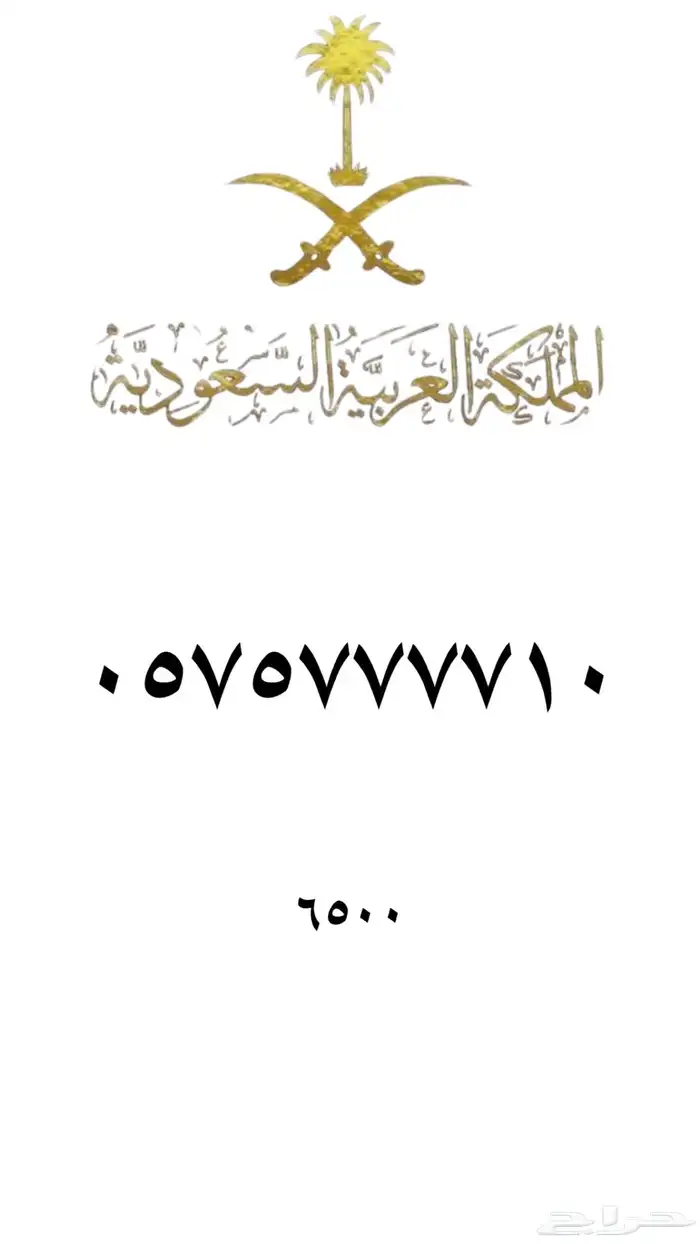 المملكة العربية السعودية
٠٥٧٥٧٧٧٧١٠
٦٥٠٠
حراج